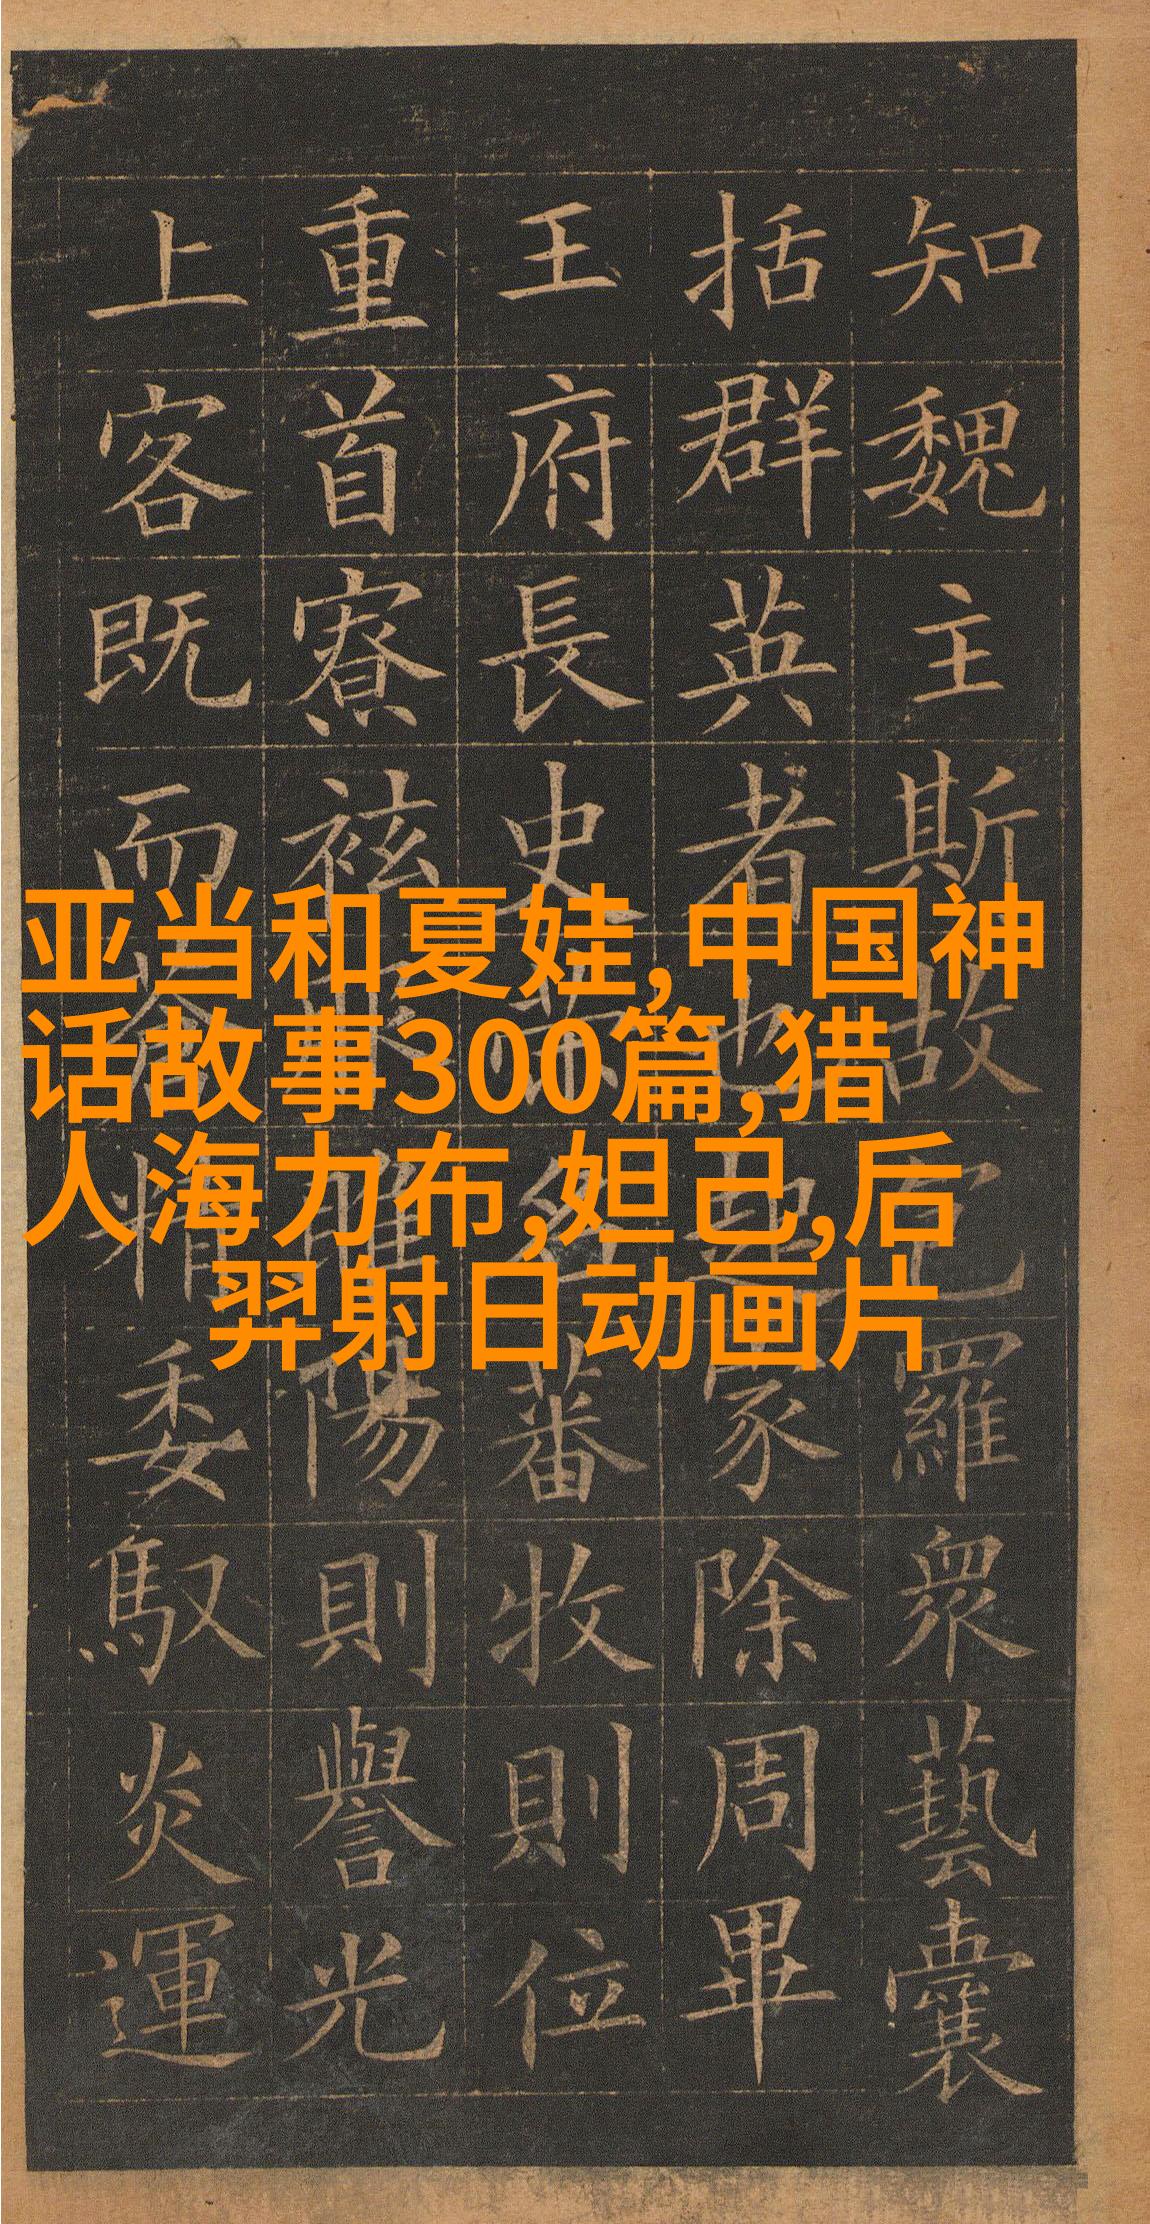 亚当和夏娃,中国神
话故事300篇,猎
人海力布,妲己,后
羿射日动画片
知魏主斯故包羅衆藝囊
括群英者也起家除周畢
王府長史蕃牧則位
重首寮袨睢陽則譽光
上客既而精委馭炎運